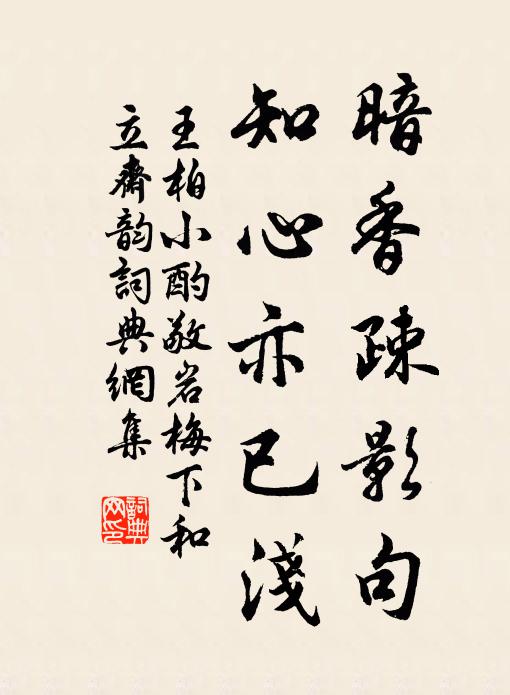 暗香疎影句
知心亦已淺
王柏小酌敬岩梅下和
立齋韵詞典網集
詞典
網印